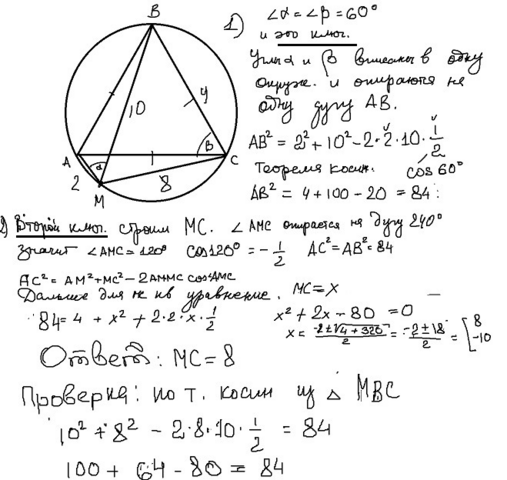 B
10
y
A
B
C
α
2
M
8
1) ∠α = ∠β = 60°
и это ключ.
Углы α и β вписаны в одну
окруж. и опираются на
одну дугу AB.
AB² = 2² + 10² - 2·2·10·1/2
Теорема косин. cos 60°
AB² = 4 + 100 - 20 = 84:
2) Второй ключ. строим MC. ∠AMC опирается на дугу 240°
Значит ∠AMC = 120° cos120° = -1/2 AC² = AB² = 84
AC² = AM² + MC² - 2AM·MC cos AMC
Дальше для кв уравнение. MC = x
84 = 4 + x² + 2·2·x·1/2 x² + 2x - 80 = 0
x = (-2±√4+320)/2 = (-2±18)/2 = [8 -10
Ответ: MC = 8
Проверка: по т. косин из △ MBC
10² + 8² - 2·8·10·1/2 = 84
100 + 64 - 80 = 84